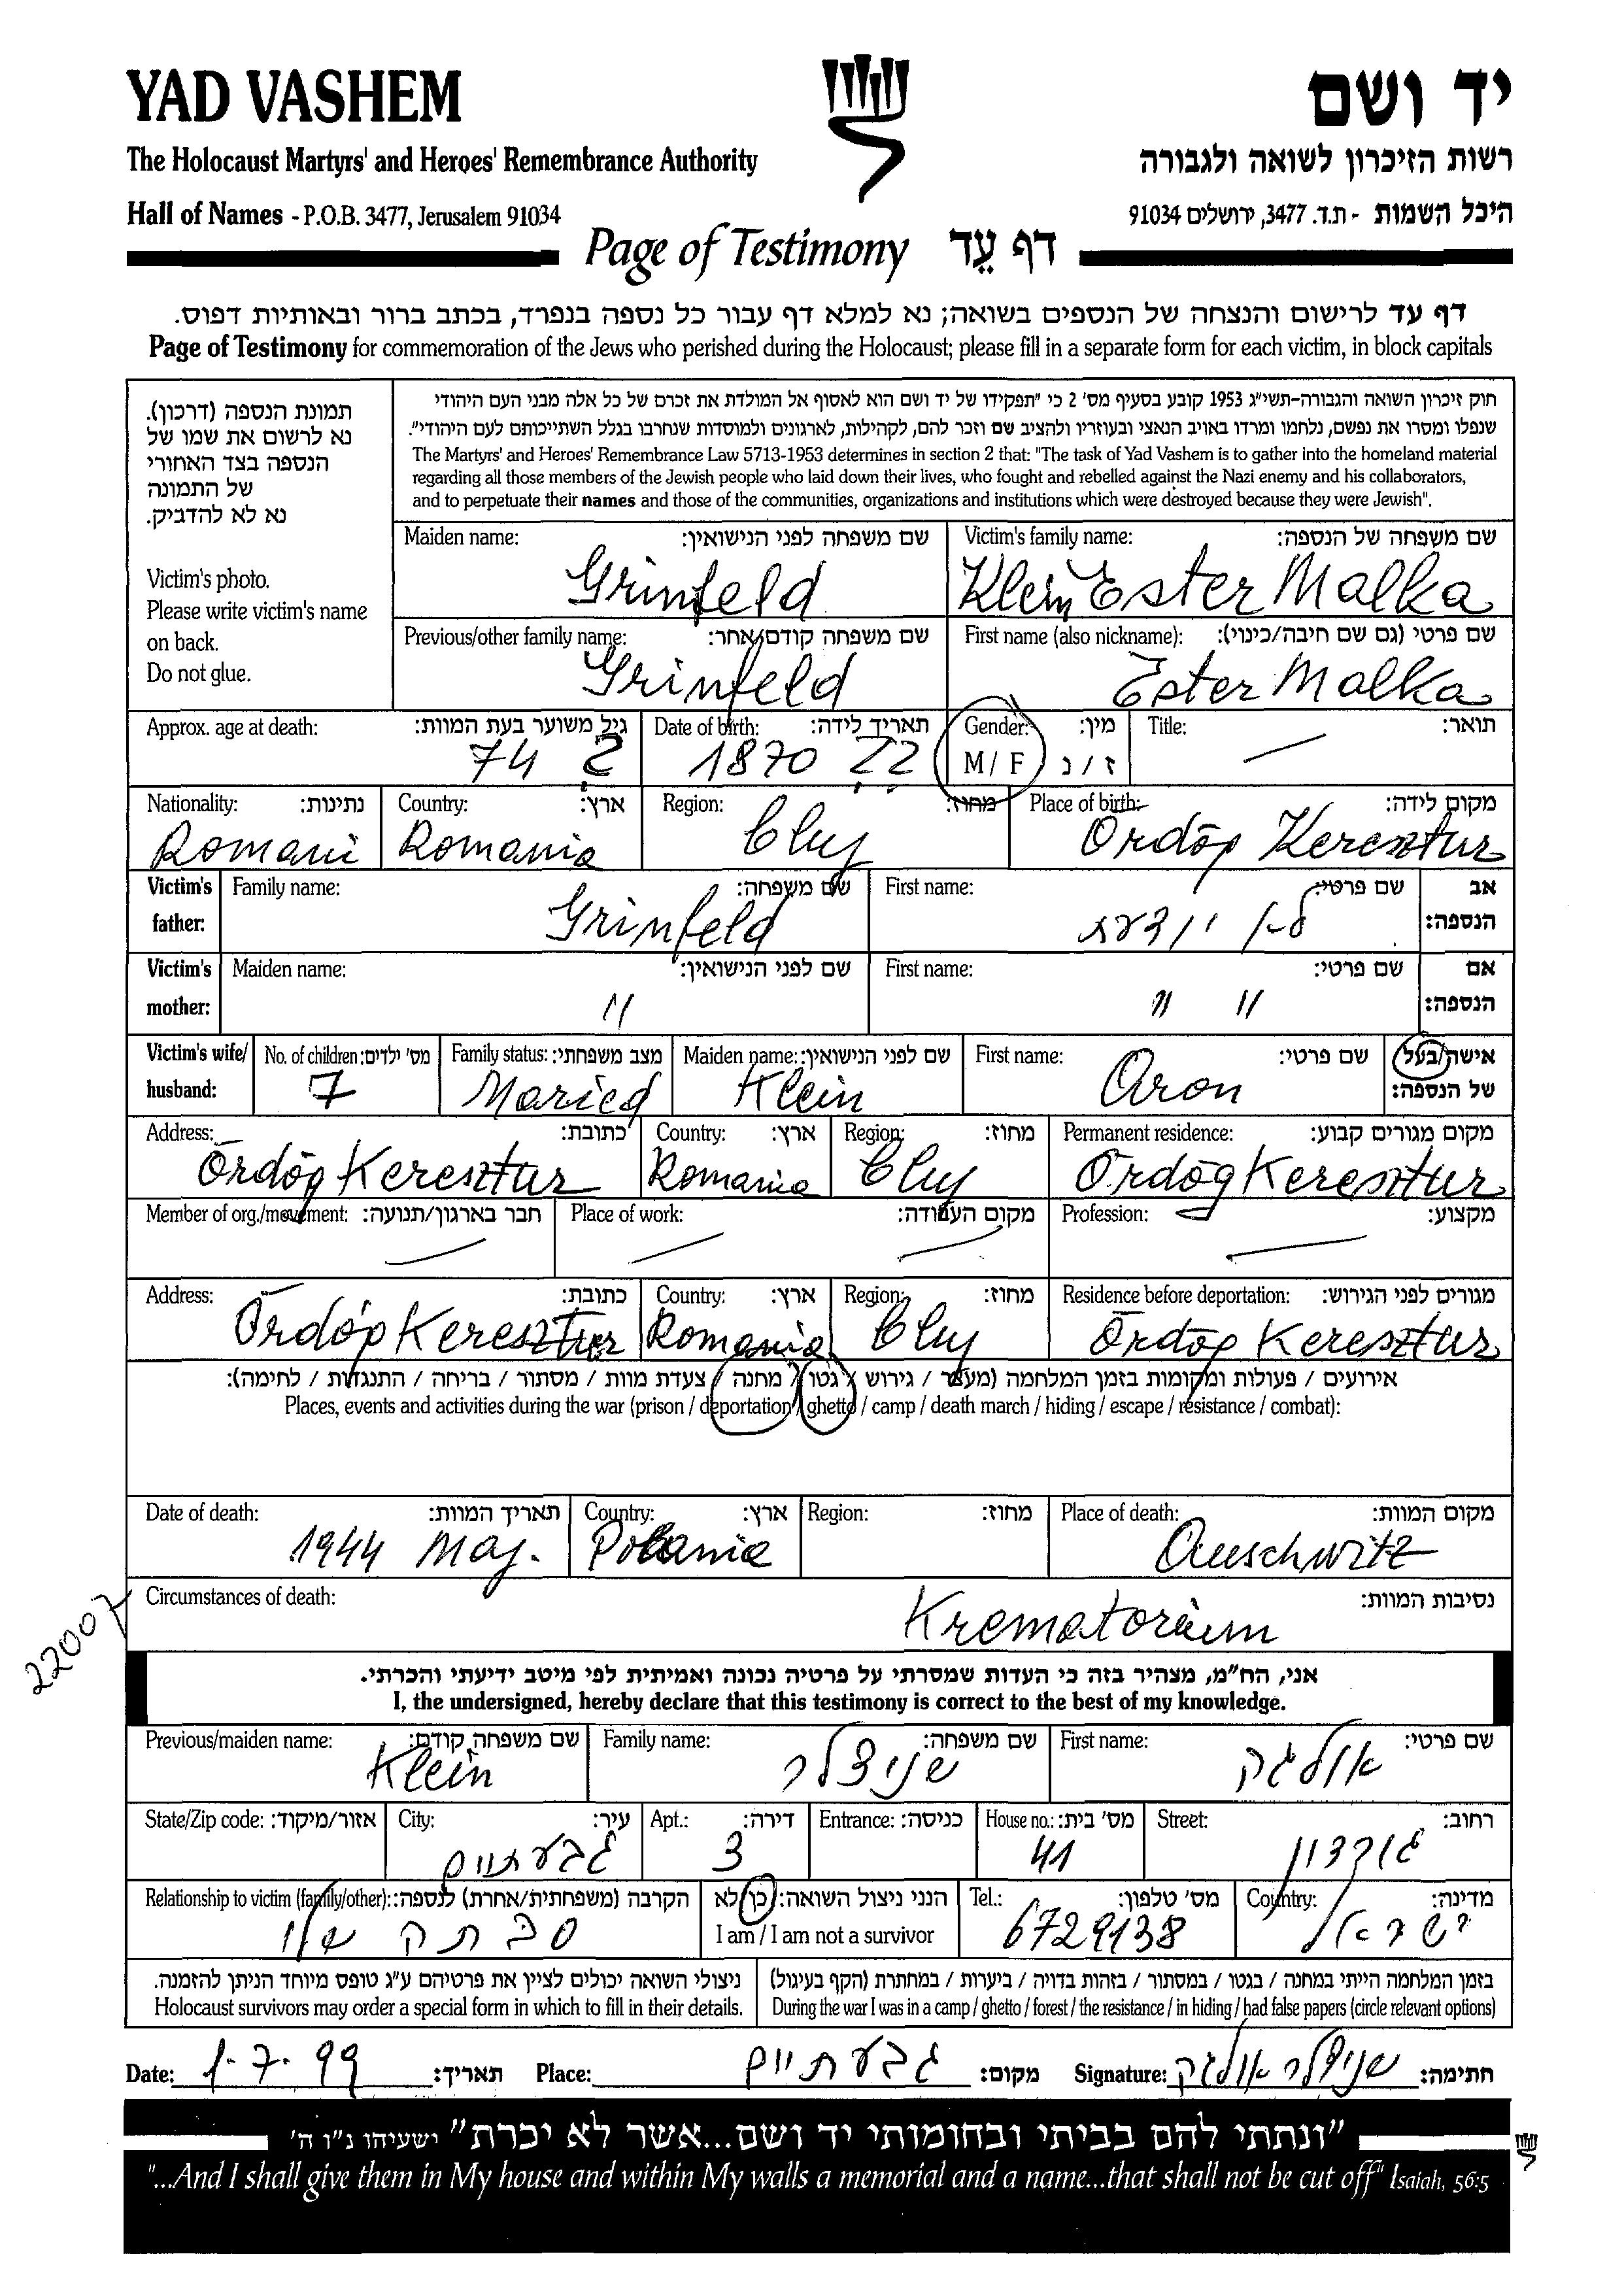 YAD VASHEM
יד ושם
The Holocaust Martyrs' and Heroes' Remembrance Authority
רשות הזיכרון לשואה ולגבורה
Hall of Names - P.O.B. 3477, Jerusalem 91034
היכל השמות - ת.ד. 3477, ירושלים 91034
Page of Testimony דף עֵד
דף עד לרישום והנצחה של הנספים בשואה; נא למלא דף עבור כל נספה בנפרד, בכתב ברור ובאותיות דפוס.
Page of Testimony for commemoration of the Jews who perished during the Holocaust; please fill in a separate form for each victim, in block capitals
תמונת הנספה (דרכון).
נא לרשום את שמו של
הנספה בצד האחורי
של התמונה
נא לא להדביק.
Victim's photo.
Please write victim's name
on back.
Do not glue.
חוק זיכרון השואה והגבורה-תשי"ג 1953 קובע בסעיף מס' 2 כי "תפקידו של יד ושם הוא לאסוף אל המולדת את זכרם של כל אלה מבני העם היהודי
שנפלו ומסרו את נפשם, נלחמו ומרדו באויב הנאצי ובעוזריו ולהציב שם וזכר להם, לקהילות, לארגונים ולמוסדות שנחרבו בגלל השתייכותם לעם היהודי".
The Martyrs' and Heroes' Remembrance Law 5713-1953 determines in section 2 that: "The task of Yad Vashem is to gather into the homeland material
regarding all those members of the Jewish people who laid down their lives, who fought and rebelled against the Nazi enemy and his collaborators,
and to perpetuate their names and those of the communities, organizations and institutions which were destroyed because they were Jewish".
Maiden name: שם משפחה לפני הנישואין: Victim's family name: שם משפחה של הנספה:
Grinfeld Klein Ester Malka
Previous/other family name: שם משפחה קודם/אחר: First name (also nickname): שם פרטי (גם שם חיבה/כינוי):
Grinfeld Ester Malka
Approx. age at death: גיל משוער בעת המוות: Date of birth: תאריך לידה: Gender: מין: Title: תואר:
74 ? 1870 ?? M / F ז / נ
Nationality: נתינות: Country: ארץ: Region: מחוז: Place of birth: מקום לידה:
Romani Romania Cluj Ördög Keresztur
Victim's father: Family name: שם משפחה: First name: שם פרטי: אב הנספה:
Grinfeld לא יודעת
Victim's mother: Maiden name: שם לפני הנישואין: First name: שם פרטי: אם הנספה:
" " "
Victim's wife/ husband: No. of children: מס' ילדים: Family status: מצב משפחתי: Maiden name: שם לפני הנישואין: First name: שם פרטי: אישה/בעל של הנספה:
7 Maried Klein Aron
Address: כתובת: Country: ארץ: Region: מחוז: Permanent residence: מקום מגורים קבוע:
Ördög Keresztur Romania Cluj Ördög Keresztur
Member of org./movement: חבר בארגון/תנועה: Place of work: מקום העבודה: Profession: מקצוע:
Address: כתובת: Country: ארץ: Region: מחוז: Residence before deportation: מגורים לפני הגירוש:
Ördög Keresztur Romania Cluj Ördög Keresztur
אירועים / פעולות ומקומות בזמן המלחמה (מעצר / גירוש / גטו / מחנה / צעדת מוות / מסתור / בריחה / התנגדות / לחימה):
Places, events and activities during the war (prison / deportation / ghetto / camp / death march / hiding / escape / resistance / combat):
Date of death: תאריך המוות: Country: ארץ: Region: מחוז: Place of death: מקום המוות:
1944 Maj. Polania Auschwitz
Circumstances of death: נסיבות המוות:
Krematorium
22007
אני, הח"מ, מצהיר בזה כי העדות שמסרתי על פרטיה נכונה ואמיתית לפי מיטב ידיעתי והכרתי.
I, the undersigned, hereby declare that this testimony is correct to the best of my knowledge.
Previous/maiden name: שם משפחה קודם: Family name: שם משפחה: First name: שם פרטי:
Klein שניצלר אולגה
State/Zip code: אזור/מיקוד: City: עיר: Apt.: דירה: Entrance: כניסה: House no.: מס' בית: Street: רחוב:
גבעתיים 3 41 גורדון
Relationship to victim (family/other): הקרבה (משפחתית/אחרת) לנספה: הנני ניצול השואה: כן לא Tel.: מס' טלפון: Country: מדינה:
סבתה שלי I am / I am not a survivor 6729138 ישראל
ניצולי השואה יכולים לציין את פרטיהם ע"ג טופס מיוחד הניתן להזמנה.
Holocaust survivors may order a special form in which to fill in their details.
בזמן המלחמה הייתי במחנה / בגטו / במסתור / בזהות בדויה / ביערות / במחתרת (הקף בעיגול)
During the war I was in a camp / ghetto / forest / the resistance / in hiding / had false papers (circle relevant options)
Date: 1.7.99 תאריך: Place: גבעתיים מקום: Signature: שניצלר אולגה חתימה:
"ונתתי להם בביתי ובחומותי יד ושם...אשר לא יכרת" ישעיהו נ"ו ה'
"...And I shall give them in My house and within My walls a memorial and a name...that shall not be cut off" Isaiah, 56:5